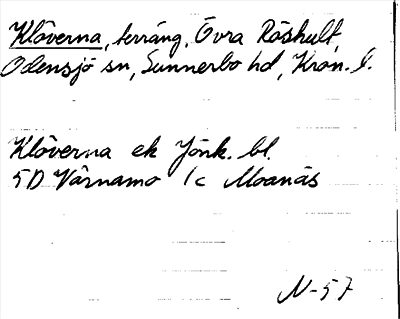 Klöverna, terräng, Övra Röshult,
Odensjö sn, Sunnerbo hd, Kron. l.
Klöverna ek Jönk. bl.
5D Värnamo 1c Moanäs
N-57